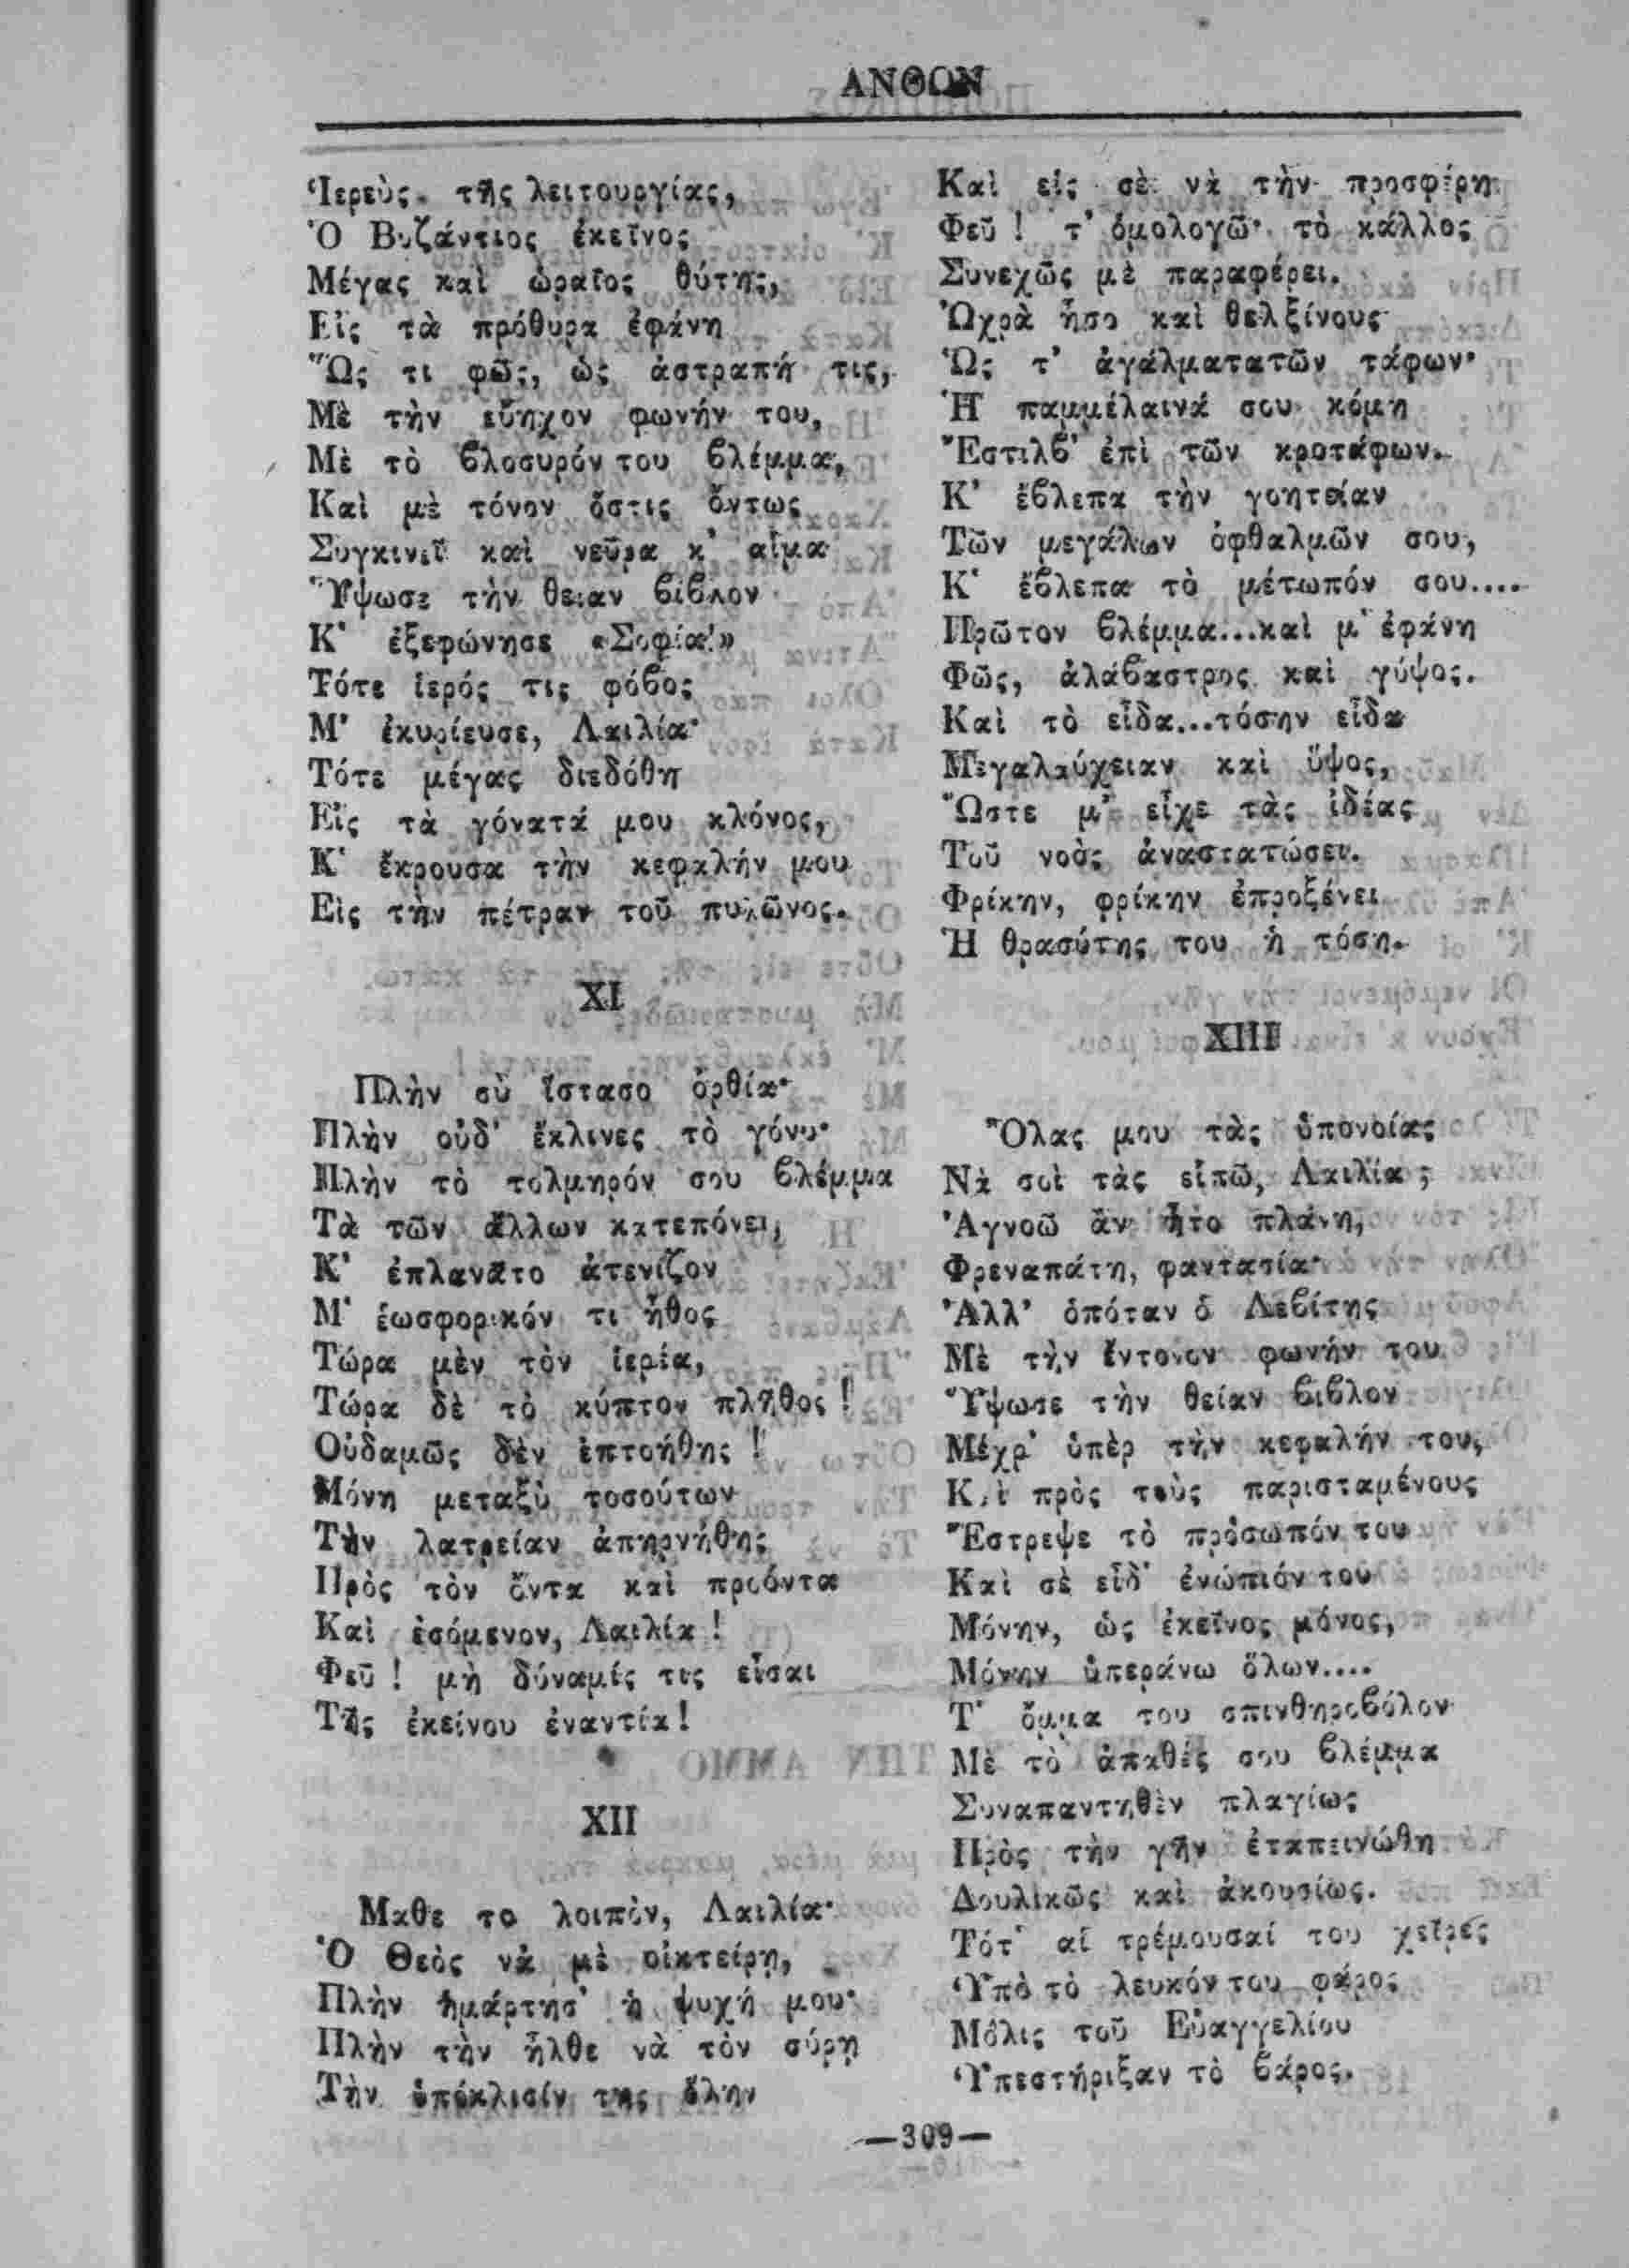 ΑΝΘΩΝ
Ἱερεὺς τῆς λειτουργίας,
Ὁ Βυζάντιος ἐκεῖνος
Μέγας καὶ ὡραῖος θύτης,
Εἰς τὰ πρόθυρα ἐφάνη
Ὥς τι φῶς, ὡς ἀστραπή τις,
Μὲ τὴν εὔηχον φωνήν του,
Μὲ τὸ βλοσυρόν του βλέμμα,
Καὶ μὲ τόνον ὅστις ὄντως
Συγκινεῖ καὶ νεῦρα κ' αἷμα
Ὕψωσε τὴν θείαν βίβλον
Κ' ἐξεφώνησε «Σοφία!»
Τότε ἱερός τις φόβος
Μ' ἐκυρίευσε, Λαιλία·
Τότε μέγας διεδόθη
Εἰς τὰ γόνατά μου κλόνος,
Κ' ἔκρουσα τὴν κεφαλήν μου
Εἰς τὴν πέτραν τοῦ πυλῶνος.
XI
Πλὴν σὺ ἵστασο ὀρθία·
Πλὴν οὐδ' ἔκλινες τὸ γόνυ·
Πλὴν τὸ τολμηρόν σου βλέμμα
Τὰ τῶν ἄλλων κατεπόνει,
Κ' ἐπλανᾶτο ἀτενίζον
Μ' ἑωσφορικόν τι ἦθος
Τώρα μὲν τὸν ἱερέα,
Τώρα δὲ τὸ κύπτον πλῆθος!
Οὐδαμῶς δὲν ἐπτοήθης!
Μόνη μεταξὺ τοσούτων
Τὴν λατρείαν ἀπηρνήθης
Πρὸς τὸν ὄντα καὶ προόντα
Καὶ ἐσόμενον, Λαιλία!
Φεῦ! μὴ δύναμίς τις εἶσαι
Τῆς ἐκείνου ἐναντία!
XII
Μαθε το λοιπὸν, Λαιλία·
Ὁ Θεὸς νὰ μὲ οἰκτείρῃ,
Πλὴν ἡμάρτησ' ἡ ψυχή μου·
Πλὴν τὴν ἦλθε νὰ τὸν σύρῃ
Τὴν ὑπόκλισίν της ὅλην
Καὶ εἰς σὲ νὰ τὴν προσφέρῃ
Φεῦ! τ' ὁμολογῶ· τὸ κάλλος
Συνεχῶς μὲ παραφέρει.
Ὠχρὰ ἦσο καὶ θελξίνους
Ὡς τ' ἀγάλματα τῶν τάφων·
Ἡ παμμέλαινά σου κόμη
Ἔστιλβ' ἐπὶ τῶν κροτάφων.
Κ' ἔβλεπα τὴν γοητείαν
Τῶν μεγάλων ὀφθαλμῶν σου,
Κ' ἔβλεπα τὸ μέτωπόν σου....
Πρῶτον βλέμμα...καὶ μ' ἐφάνη
Φῶς, ἀλάβαστρος καὶ γύψος.
Καὶ τὸ εἶδα...τόσην εἶδα
Μεγαλαύχειαν καὶ ὕψος,
Ὥστε μ' εἶχε τὰς ἰδέας
Τοῦ νοὸς ἀναστατώσει.
Φρίκην, φρίκην ἐπροξένει
Ἡ θρασύτης του ἡ τόση.
XIII
Ὅλας μου τὰς ὑπονοίας
Νὰ σοὶ τὰς εἰπῶ, Λαιλία;
Ἀγνοῶ ἂν ἦτο πλάνη,
Φρεναπάτη, φαντασία·
Ἀλλ' ὁπόταν ὁ Λεβίτης
Μὲ τὴν ἔντονον φωνήν του
Ὕψωσε τὴν θείαν βιβλον
Μέχρ' ὑπὲρ τὴν κεφαλήν του,
Καὶ πρὸς τοὺς παρισταμένους
Ἔστρεψε τὸ πρόσωπόν του
Καὶ σὲ εἶδ' ἐνώπιόν του
Μόνην, ὡς ἐκεῖνος μόνος,
Μόνην ὑπεράνω ὅλων....
Τ' ὄμμα του σπινθηροβόλον
Μὲ τὸ ἀπαθές σου βλέμμα
Συναπαντηθὲν πλαγίως
Πρὸς τὴν γῆν ἐταπεινώθη
Δουλικῶς καὶ ἀκουσίως.
Τότ' αἱ τρέμουσαί του χεῖρες
Ὑπὸ τὸ λευκόν του φάρος
Μόλις τοῦ Εὐαγγελίου
Ὑπεστήριξαν τὸ βάρος.
—309—